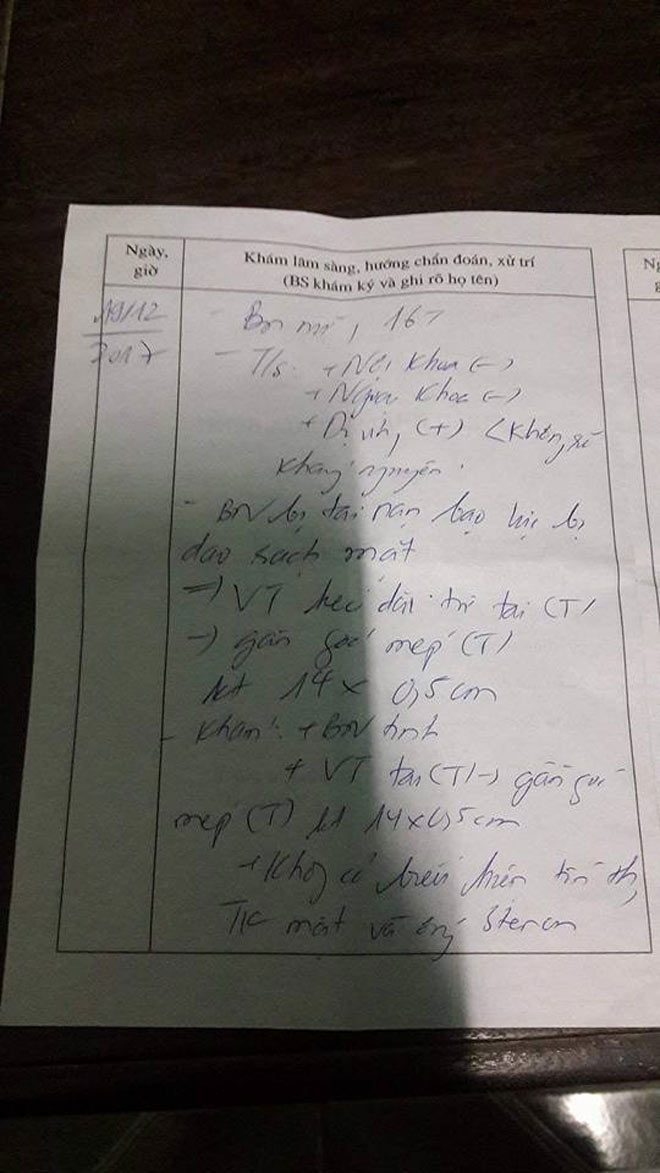 Ngày, giờ
Khám lâm sàng, hướng chẩn đoán, xử trí
(BS khám ký và ghi rõ họ tên)
Ng
g
19/12
2017
- BN nữ, 16T
- T/s: + Nội khoa (-)
+ Ngoại khoa (-)
+ Dị ứng (+) (không rõ
kháng nguyên
- BN bị tai nạn bạo lực bị
dao rạch mặt
=> VT kéo dài từ tai (T)
-> gần góc mép (T)
kt 14 x 0,5cm
- Khám: + BN tỉnh
+ VT tai (T) -> gần góc
mép (T) kt 14x0,5cm
+ Không có biểu hiện tổn th
TK mặt và ống Stenon